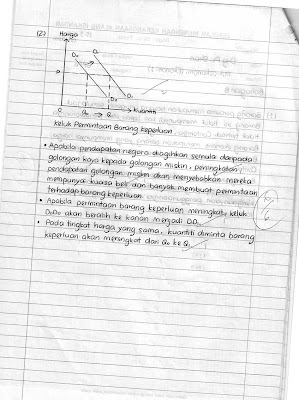 (2)
Harga
D₁
D₀
P
D₁
D₀
0
Q₀ → Q₁
Kuantiti
Keluk Permintaan Barang keperluan
• Apabila pendapatan negara diagihkan semula daripada
golongan kaya kepada golongan miskin, peningkatan
pendapatan golongan miskin akan menyebabkan mereka
mempunyai kuasa beli dan banyak membuat permintaan
terhadap barang keperluan.
• Apabila permintaan barang keperluan meningkat, keluk
D₀D₀ akan beralih ke kanan menjadi D₁D₁.
• Pada tingkat harga yang sama, kuantiti diminta barang
keperluan akan meningkat dari Q₀ ke Q₁